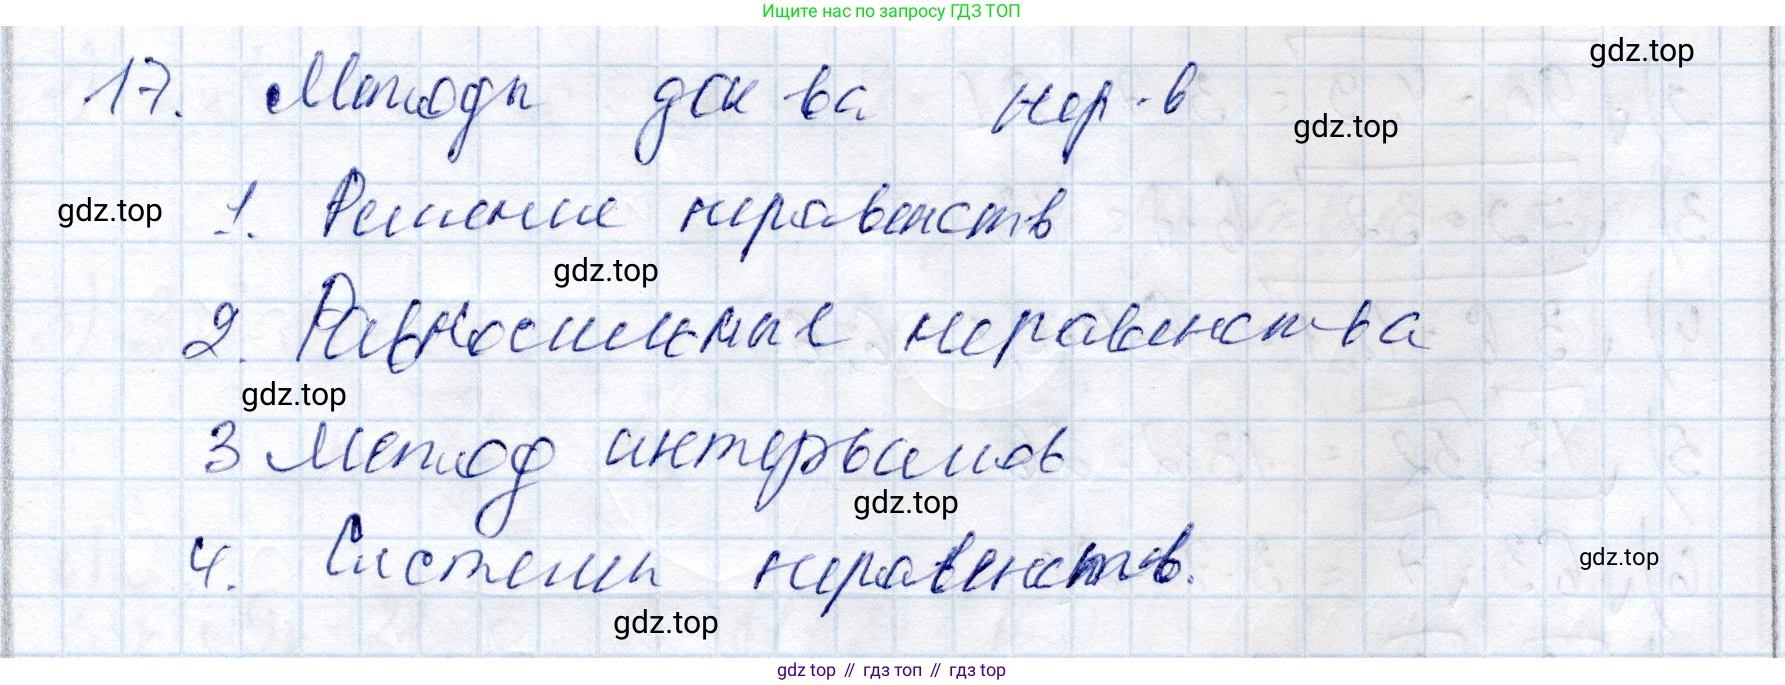 Ищите нас по запросу ГДЗ ТОП
gdz.top
17. Методы док ва нер-в
gdz.top
1. Решение неравенств
gdz.top
gdz.top
2. Равносильные неравенства
gdz.top
3 Метод интервалов
gdz.top
4. Системы неравенств.
gdz.top
gdz.top
gdz top // гдз топ // гдз top